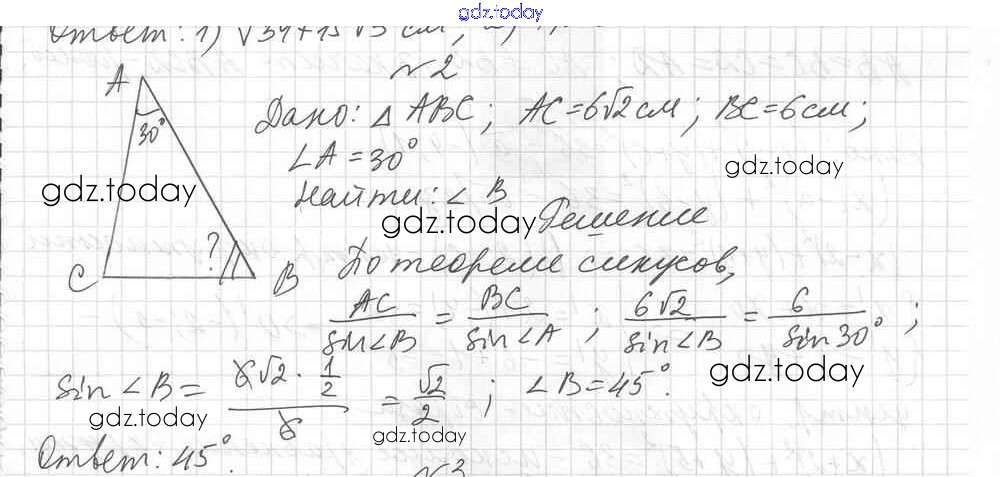 gdz.today
Ответ: 1) √34+15√3 см;
№2
A
30°
Дано: △ ABC; AC=6√2 см; BC=6 см;
∠A=30°
gdz.today
gdz.today
Найти: ∠ B
gdz.today
Решение
?
C
B
По теореме синусов,
AC/sin∠B = BC/sin∠A ; 6√2/sin∠B = 6/sin30° ;
gdz.today
sin∠B = 6√2 · 1/2 / 6 = √2/2 ; ∠B=45°.
gdz.today
gdz.today
Ответ: 45°.
№3